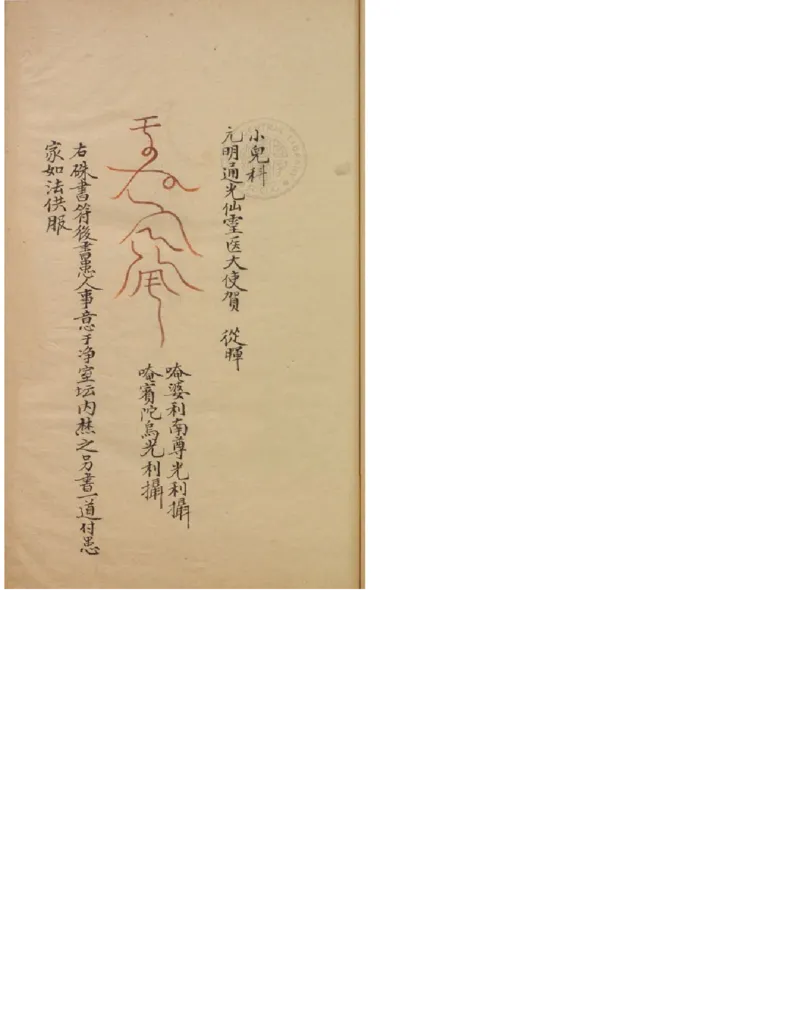 小兒科
元明通光仙靈医大使賀 從暉
唵婆利南尊光利攝
唵賓陀烏光利攝
右硃書符後書患人事意于净室坛内焚之另書一道付患
家如法供服